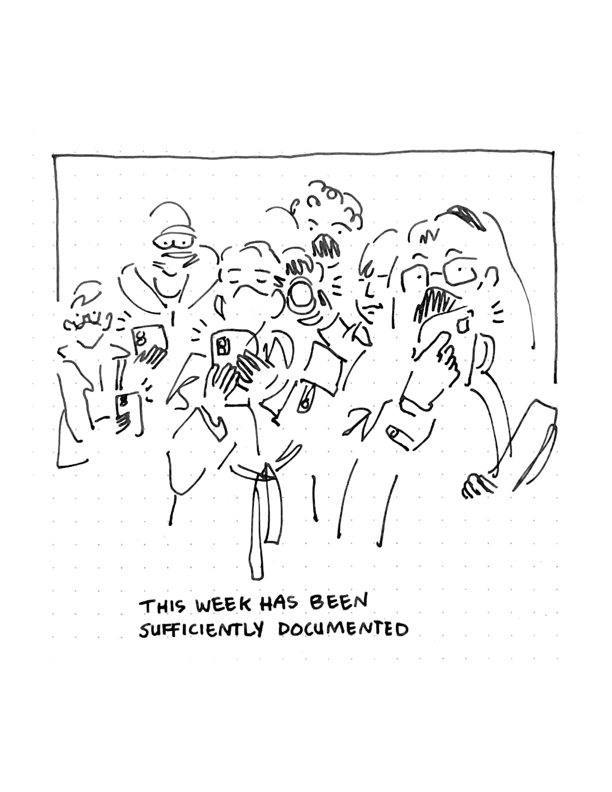 THIS WEEK HAS BEEN
SUFFICIENTLY DOCUMENTED